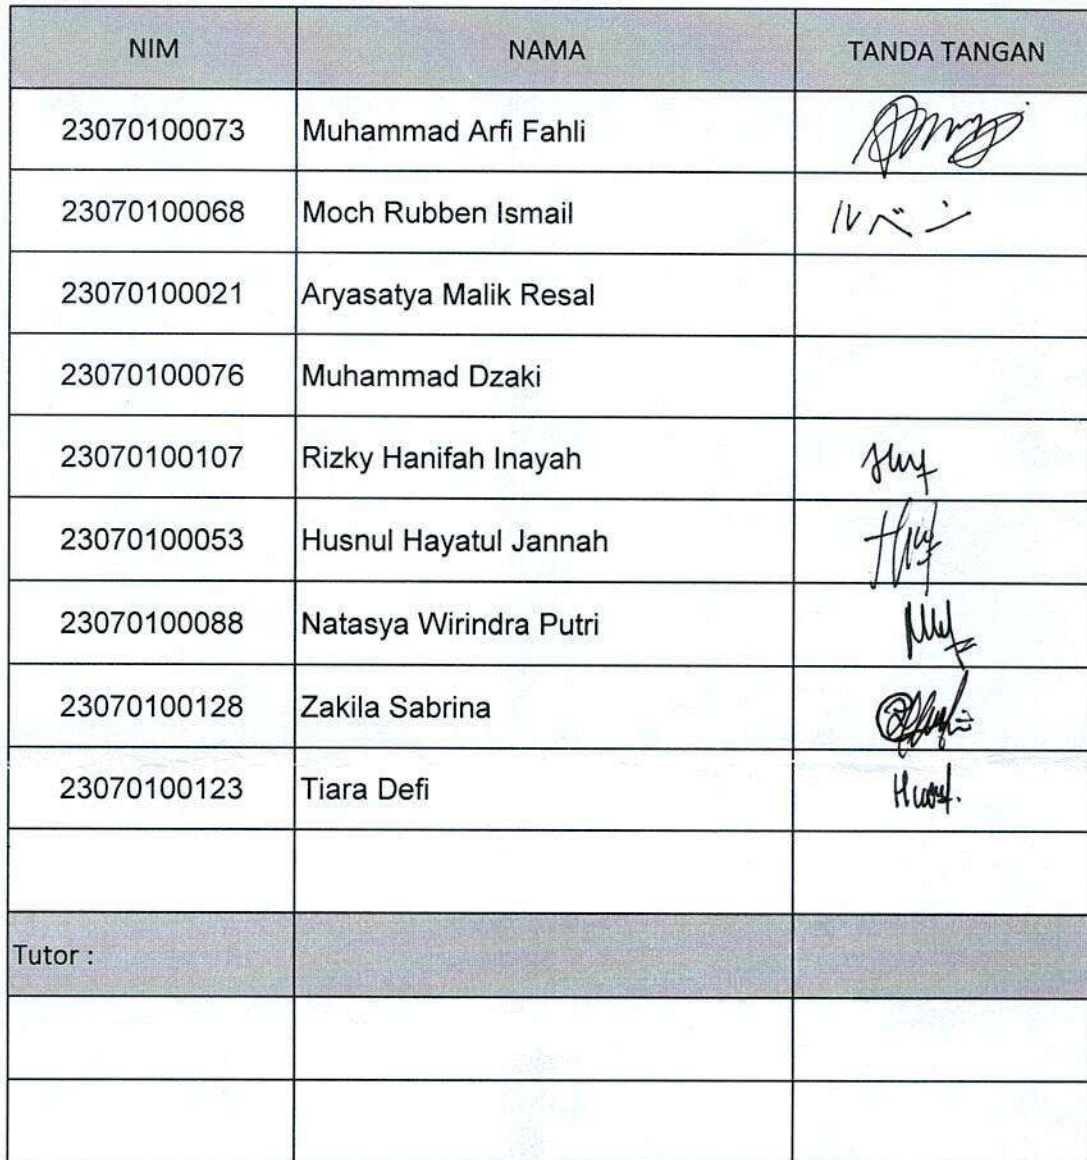 NIM NAMA TANDA TANGAN
23070100073 Muhammad Arfi Fahli
23070100068 Moch Rubben Ismail ルベン
23070100021 Aryasatya Malik Resal
23070100076 Muhammad Dzaki
23070100107 Rizky Hanifah Inayah
23070100053 Husnul Hayatul Jannah
23070100088 Natasya Wirindra Putri
23070100128 Zakila Sabrina
23070100123 Tiara Defi
Tutor :